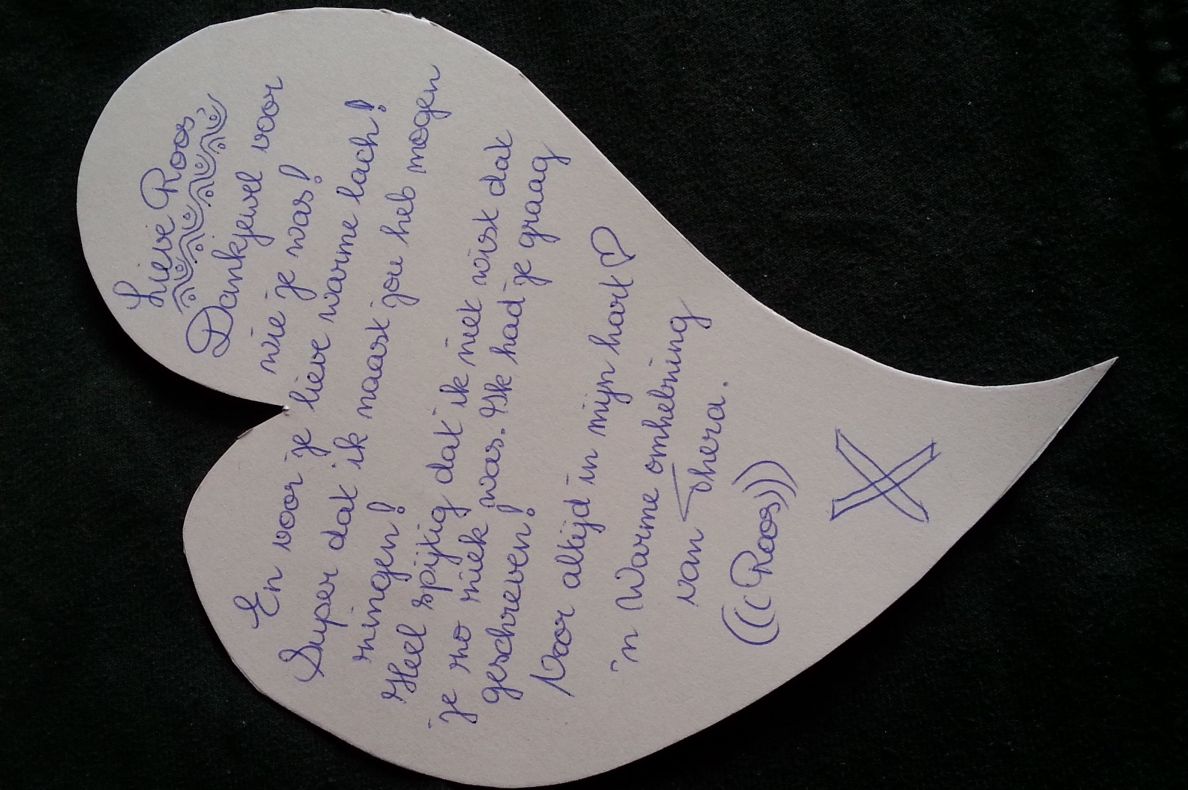 Lieve Roos
Dankjewel voor
wie je was!
En voor je lieve warme lach!
Super dat ik naast jou heb mogen
zingen!
Heel spijtig dat ik niet wist dat
je zo ziek was. Ik had je graag
geschreven!
Voor altijd in mijn hart ♡
'n Warme omhelzing
van Thera.
(((Roos)))
X